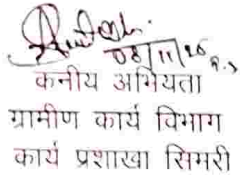 08/11/25
कनीय अभियंता
ग्रामीण कार्य विभाग
कार्य प्रशाखा सिमरी